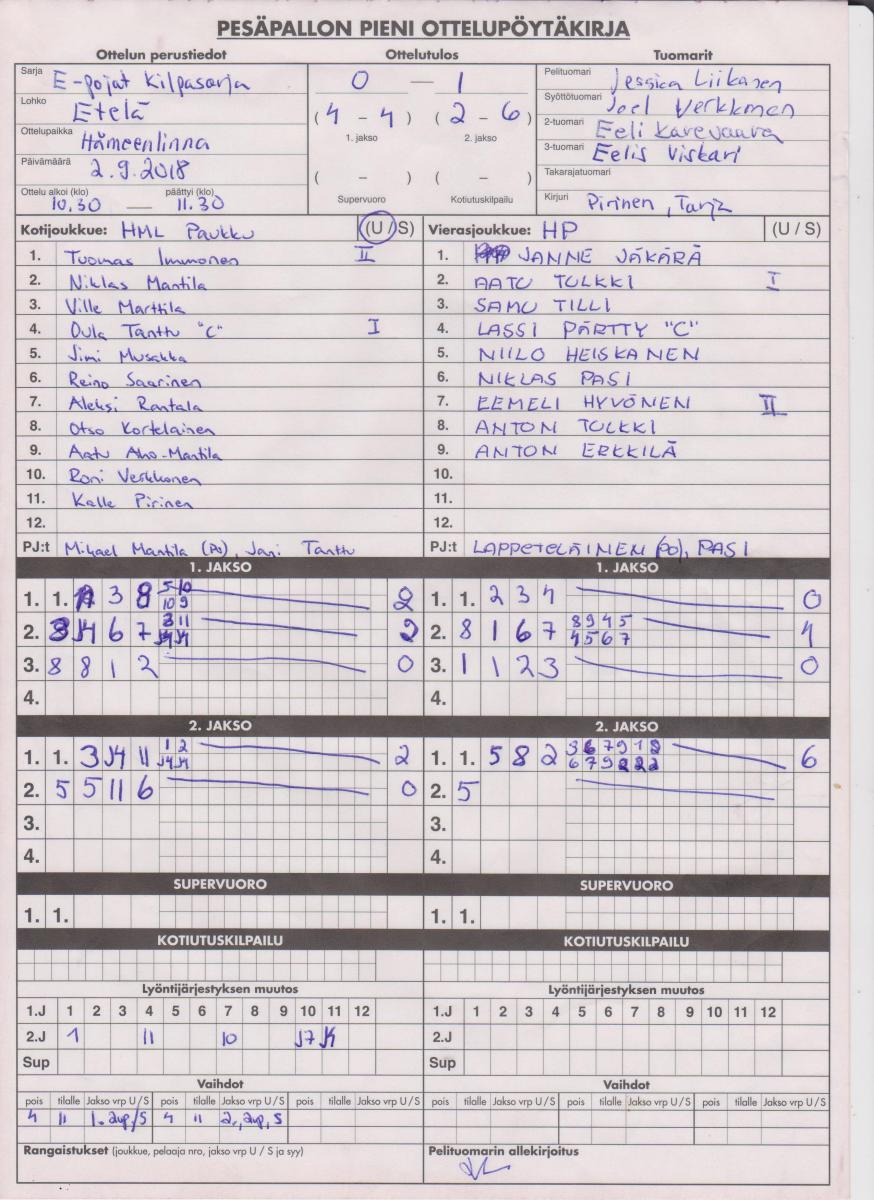 PESÄPALLON PIENI OTTELUPÖYTÄKIRJA
Ottelun perustiedot Ottelutulos Tuomarit
Sarja E-pojat Kilpasarja
Lohko Etelä
Ottelupaikka Hämeenlinna
Päivämäärä 2.9.2018
Ottelu alkoi (klo) päättyi (klo)
10.30 — 11.30
0 — 1
(4 - 4) (2 - 6)
1. jakso 2. jakso
( - ) ( - )
Supervuoro Kotiutuskilpailu
Pelituomari Jessica Liikanen
Syöttötuomari Joel Verkkonen
2-tuomari Eeli Karevaara
3-tuomari Eelis Viskari
Takarajatuomari
Kirjuri Pirinen, Tarja
Kotijoukkue: HML Paukku (U / S)
1. Tuomas Immonen II
2. Niklas Mantila
3. Ville Marttila
4. Oula Tanttu "C" I
5. Jimi Musakka
6. Reino Saarinen
7. Aleksi Rantala
8. Otso Kortelainen
9. Aatu Aho-Mantila
10. Roni Verkkonen
11. Kalle Pirinen
12.
PJ:t Mikael Mantila (PO), Jani Tanttu
Vierasjoukkue: HP (U / S)
1. JANNE JÄKÄRÄ
2. AATU TULKKI I
3. SAMU TILLI
4. LASSI PÄRTTY "C"
5. NIILO HEISKANEN
6. NIKLAS PASI
7. EEMELI HYVÖNEN II
8. ANTON TULKKI
9. ANTON ERKKILÄ
10.
11.
12.
PJ:t LAPPETELÄINEN (PO), PASI
1. JAKSO
1. 1. 3 8 5 10 2
10 9
2. J4 6 7 3 11 2
J4 J4
3. 8 8 1 2 0
4.
1. JAKSO
1. 1. 2 3 4 0
2. 8 1 6 7 8 9 4 5 4
4 5 6 7
3. 1 1 2 3 0
4.
2. JAKSO
1. 1. 3 J4 11 1 2 2
J4 J4
2. 5 5 11 6 0
3.
4.
2. JAKSO
1. 1. 5 8 2 3 6 7 9 1 8 6
6 7 9 2 2 2
2. 5
3.
4.
SUPERVUORO
1. 1.
SUPERVUORO
1. 1.
KOTIUTUSKILPAILU
KOTIUTUSKILPAILU
Lyöntijärjestyksen muutos
1.J 1 2 3 4 5 6 7 8 9 10 11 12
2.J 1 11 10 J7 J4
Sup
Lyöntijärjestyksen muutos
1.J 1 2 3 4 5 6 7 8 9 10 11 12
2.J
Sup
Vaihdot
pois tilalle Jakso vrp U / S pois tilalle Jakso vrp U / S pois tilalle Jakso vrp U / S
4 11 1. 2vp/S 4 11 2., 2vp, S
Vaihdot
pois tilalle Jakso vrp U / S pois tilalle Jakso vrp U / S pois tilalle Jakso vrp U / S
Rangaistukset (joukkue, pelaaja nro, jakso vrp U / S ja syy)
Pelituomarin allekirjoitus